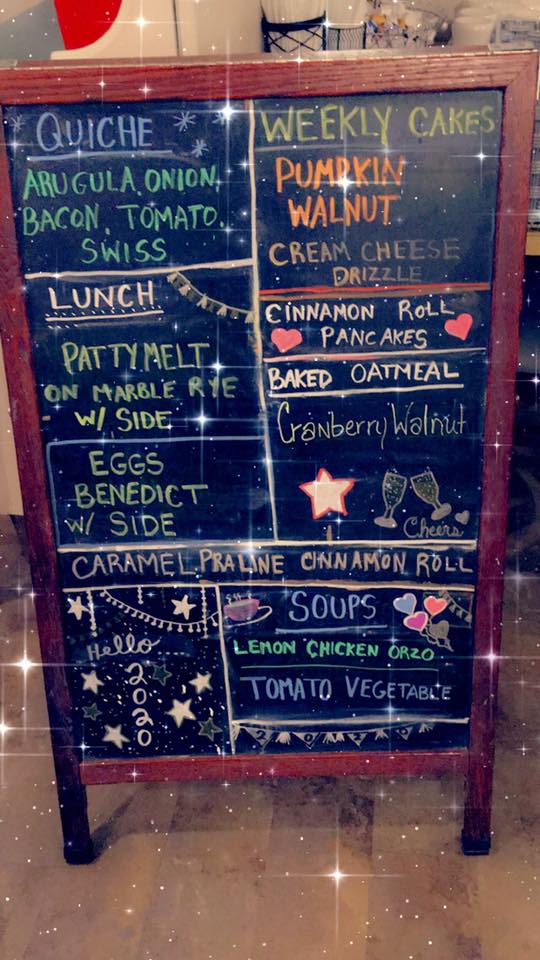 QUICHE
ARUGULA, ONION,
BACON, TOMATO,
SWISS
LUNCH
PATTY MELT
ON MARBLE RYE
W/ SIDE
EGGS
BENEDICT
W/ SIDE
WEEKLY CAKES
PUMPKIN
WALNUT
CREAM CHEESE
DRIZZLE
CINNAMON ROLL
PANCAKES
BAKED OATMEAL
Cranberry Walnut
Cheers
CARAMEL PRALINE CINNAMON ROLL
Hello....
2
0
2
0
SOUPS
LEMON CHICKEN ORZO
TOMATO VEGETABLE
2020